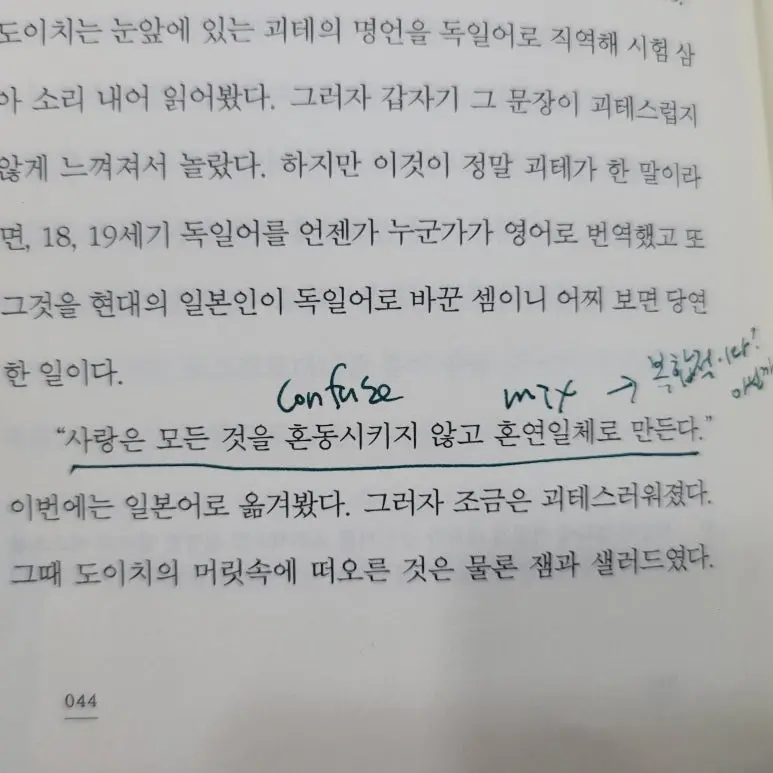 도이치는 눈앞에 있는 괴테의 명언을 독일어로 직역해 시험 삼
아 소리 내어 읽어봤다. 그러자 갑자기 그 문장이 괴테스럽지
않게 느껴져서 놀랐다. 하지만 이것이 정말 괴테가 한 말이라
면, 18, 19세기 독일어를 언젠가 누군가가 영어로 번역했고 또
그것을 현대의 일본인이 독일어로 바꾼 셈이니 어찌 보면 당연
한 일이다.
confuse mix → 복합적·이다?
“사랑은 모든 것을 혼동시키지 않고 혼연일체로 만든다.”
이번에는 일본어로 옮겨봤다. 그러자 조금은 괴테스러워졌다.
그때 도이치의 머릿속에 떠오른 것은 물론 잼과 샐러드였다.
044